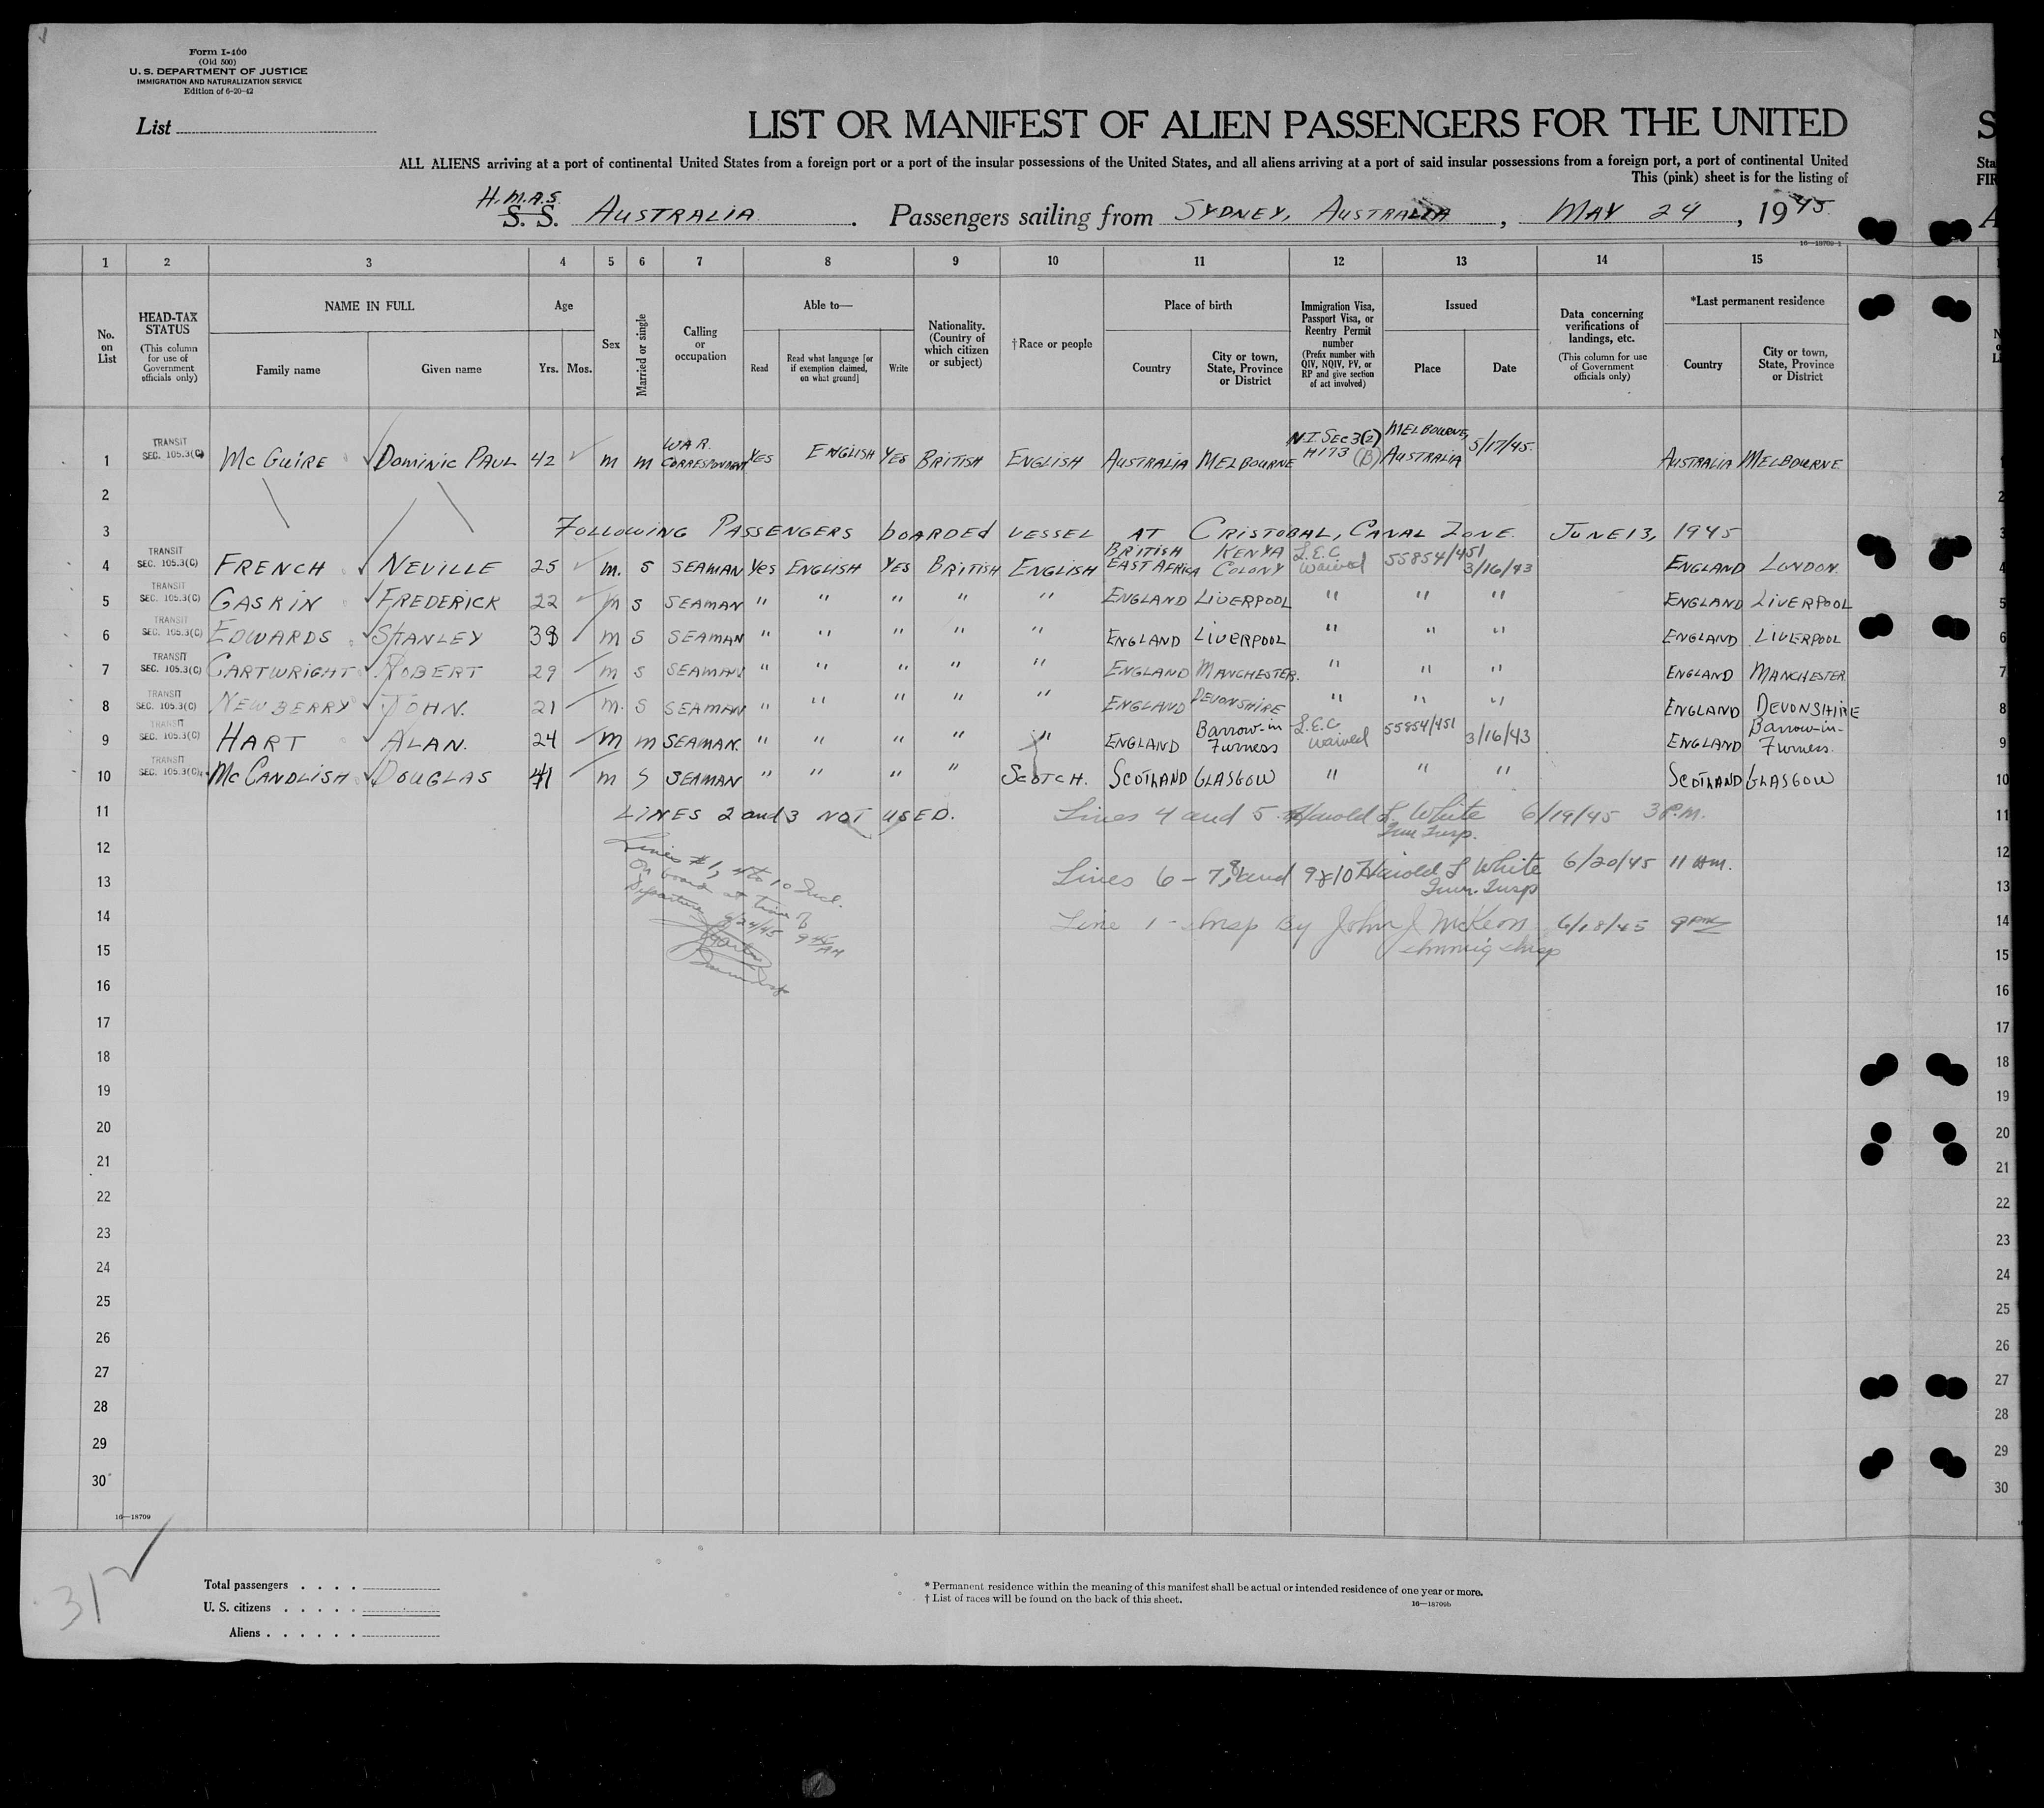 Form I-400
(Old 500)
U. S. DEPARTMENT OF JUSTICE
IMMIGRATION AND NATURALIZATION SERVICE
Edition of 6-20-42
List
LIST OR MANIFEST OF ALIEN PASSENGERS FOR THE UNITED
S
ALL ALIENS arriving at a port of continental United States from a foreign port or a port of the insular possessions of the United States, and all aliens arriving at a port of said insular possessions from a foreign port, a port of continental United
Sta
This (pink) sheet is for the listing of
FIR
H.M.A.S.
S. S. AUSTRALIA. Passengers sailing from SYDNEY, AUSTRALIA, MAY 24, 1945.
A
16—18709-1
1 2 3 4 5 6 7 8 9 10 11 12 13 14 15
No. on List
HEAD-TAX STATUS
(This column for use of Government officials only)
NAME IN FULL
Family name
Given name
Age
Yrs. Mos.
Sex
Married or single
Calling or occupation
Able to—
Read
Read what language [or if exemption claimed, on what ground]
Write
Nationality. (Country of which citizen or subject)
†Race or people
Place of birth
Country
City or town, State, Province or District
Immigration Visa, Passport Visa, or Reentry Permit number
(Prefix number with QIV, NQIV, PV, or RP and give section of act involved)
Issued
Place
Date
Data concerning verifications of landings, etc.
(This column for use of Government officials only)
*Last permanent residence
Country
City or town, State, Province or District
1 TRANSIT SEC. 105.3(C) McGUIRE DOMINIC PAUL 42 M M WAR CORRESPONDENT YES ENGLISH YES BRITISH ENGLISH AUSTRALIA MELBOURNE N.I. SEC 3(2) H173 (B) MELBOURNE, AUSTRALIA 5/17/45. AUSTRALIA MELBOURNE
2
3 FOLLOWING PASSENGERS BOARDED VESSEL AT CRISTOBAL, CANAL ZONE. JUNE 13, 1945
4 TRANSIT SEC. 105.3(C) FRENCH NEVILLE 25 M. S SEAMAN YES ENGLISH YES BRITISH ENGLISH BRITISH EAST AFRICA KENYA COLONY waived 55854/451 3/16/43 ENGLAND LONDON.
5 TRANSIT SEC. 105.3(C) GASKIN FREDERICK 22 M S SEAMAN " " " " " ENGLAND LIVERPOOL " " " ENGLAND LIVERPOOL
6 TRANSIT SEC. 105.3(C) EDWARDS STANLEY 38 M S SEAMAN " " " " " ENGLAND LIVERPOOL " " " ENGLAND LIVERPOOL
7 TRANSIT SEC. 105.3(C) CARTWRIGHT ROBERT 29 M S SEAMAN " " " " " ENGLAND MANCHESTER. " " " ENGLAND MANCHESTER
8 TRANSIT SEC. 105.3(C) NEWBERRY JOHN. 21 M. S SEAMAN " " " " " ENGLAND DEVONSHIRE " " " ENGLAND DEVONSHIRE
9 TRANSIT SEC. 105.3(C) HART ALAN. 24 M M SEAMAN. " " " " " ENGLAND Barrow-in Furness waived 55854/451 3/16/43 ENGLAND Barrow-in-Furness.
10 TRANSIT SEC. 105.3(C) McCANDLISH DOUGLAS 41 M S SEAMAN " " " " SCOTCH. SCOTLAND GLASGOW " " " SCOTLAND GLASGOW
11 LINES 2 and 3 NOT USED. Lines 4 and 5. Harold L. White 6/19/45 3 P.M.
Imm Insp.
12 Lines #1, 4 to 10 Incl.
On board at time of
Departure 6/24/45 9 AM
13 Lines 6 - 7, 8 and 9 & 10 Harold L White 6/20/45 11 AM.
Imm. Insp
14 Line 1 - Insp By John J McKeon 6/18/45 9 PM
Immig Insp
15
16
17
18
19
20
21
22
23
24
25
26
27
28
29
30
16—18709
312
Total passengers
U. S. citizens
Aliens
* Permanent residence within the meaning of this manifest shall be actual or intended residence of one year or more.
† List of races will be found on the back of this sheet.
16—18709b